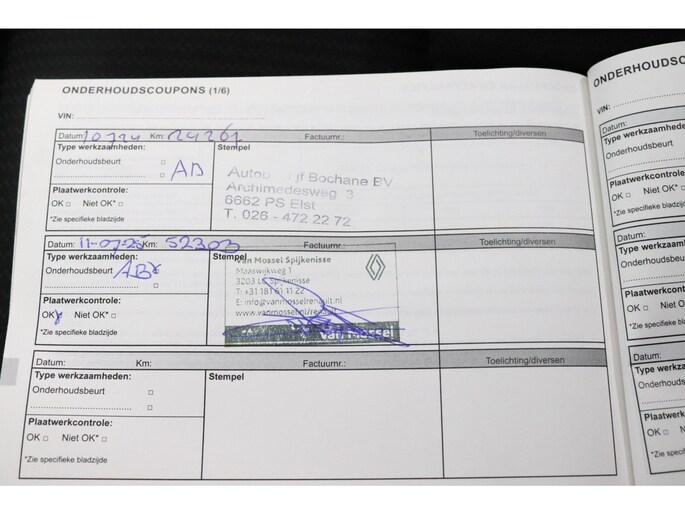 ONDERHOUDSCOUPONS (1/6)
VIN:
Datum: 10/7/24 Km: 24261 Factuurnr.: Toelichting/diversen
Type werkzaamheden: Stempel
Onderhoudsbeurt AB
Plaatwerkcontrole:
OK Niet OK*
*Zie specifieke bladzijde
Bochane BV
Archimedesweg 3
6662 PS Elst
T. 026 - 472 22 72
Datum: 11-07-25 Km: 52303 Factuurnr.: Toelichting/diversen
Type werkzaamheden: Stempel
Onderhoudsbeurt AB
Plaatwerkcontrole:
OK Niet OK*
*Zie specifieke bladzijde
Van Mossel Spijkenisse
Maaswijkweg 1
3203 Spijkenisse
T: +31 181 61 11 22
E: info@vanmosselrenault.nl
www.vanmossel.nl/renault
Van Mossel
Datum: Km: Factuurnr.: Toelichting/diversen
Type werkzaamheden: Stempel
Onderhoudsbeurt
Plaatwerkcontrole:
OK Niet OK*
*Zie specifieke bladzijde
ONDERHOUDSC
VIN:
Datum:
Type werkzaamheden
Onderhoudsbeurt
Plaatwerkcontrole
OK Niet OK*
*Zie specifieke bladzijde
Datum:
Type werkzaam
Onderhoudsbeu
Plaatwerkcontr
OK Niet O
*Zie specifieke bladz
Datum:
Type werkza
Onderhoudsb
Plaatwerkc
OK N
*Zie specifieke